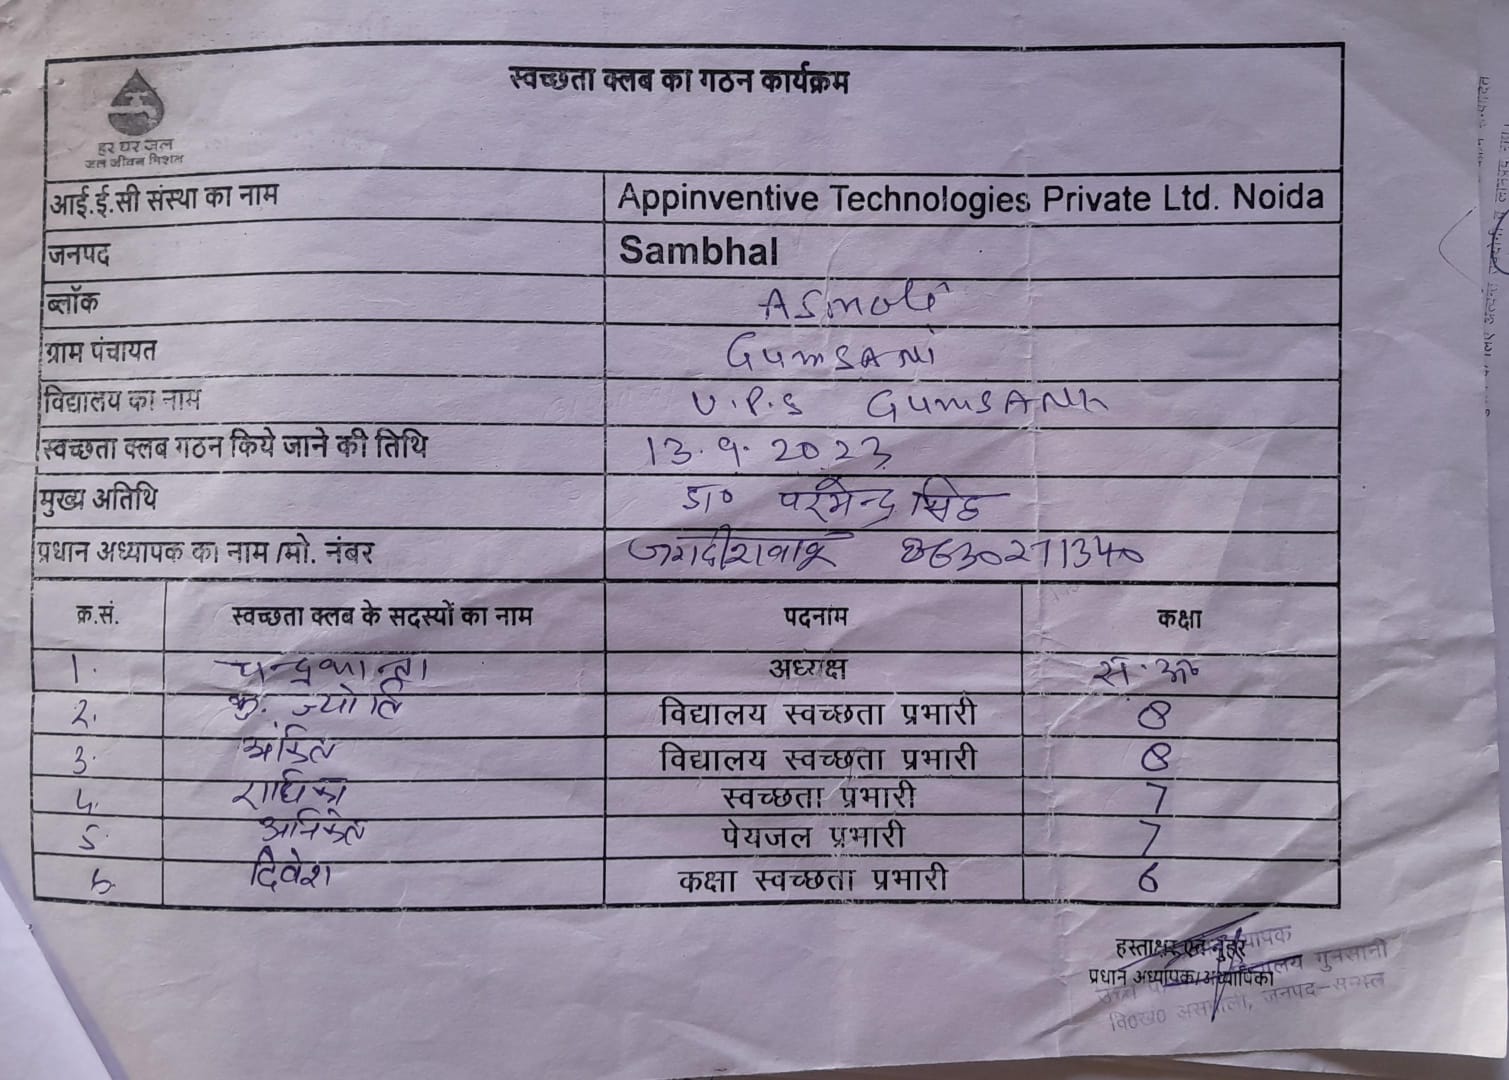 स्वच्छता क्लब का गठन कार्यक्रम
हर घर जल
जल जीवन मिशन
आई.ई.सी संस्था का नाम Appinventive Technologies Private Ltd. Noida
जनपद Sambhal
ब्लॉक Asmoli
ग्राम पंचायत GumSANi
विद्यालय का नाम U.P.S GumSANi
स्वच्छता क्लब गठन किये जाने की तिथि 13.9.2023
मुख्य अतिथि डा० परमेन्द्र सिंह
प्रधान अध्यापक का नाम /मो. नंबर 8630271340
क्र.सं. स्वच्छता क्लब के सदस्यों का नाम पदनाम कक्षा
1. चन्द्रकान्ता अध्यक्ष स.अ०
2. कु. ज्योति विद्यालय स्वच्छता प्रभारी 8
3. अंकित विद्यालय स्वच्छता प्रभारी 8
4. राधिका स्वच्छता प्रभारी 7
5. अनिकेत पेयजल प्रभारी 7
6. दिवेश कक्षा स्वच्छता प्रभारी 6
हस्ताक्षर एवं मुहर
प्रधान अध्यापक/अध्यापिका
वि०ख० असमोली, जनपद-सम्भल